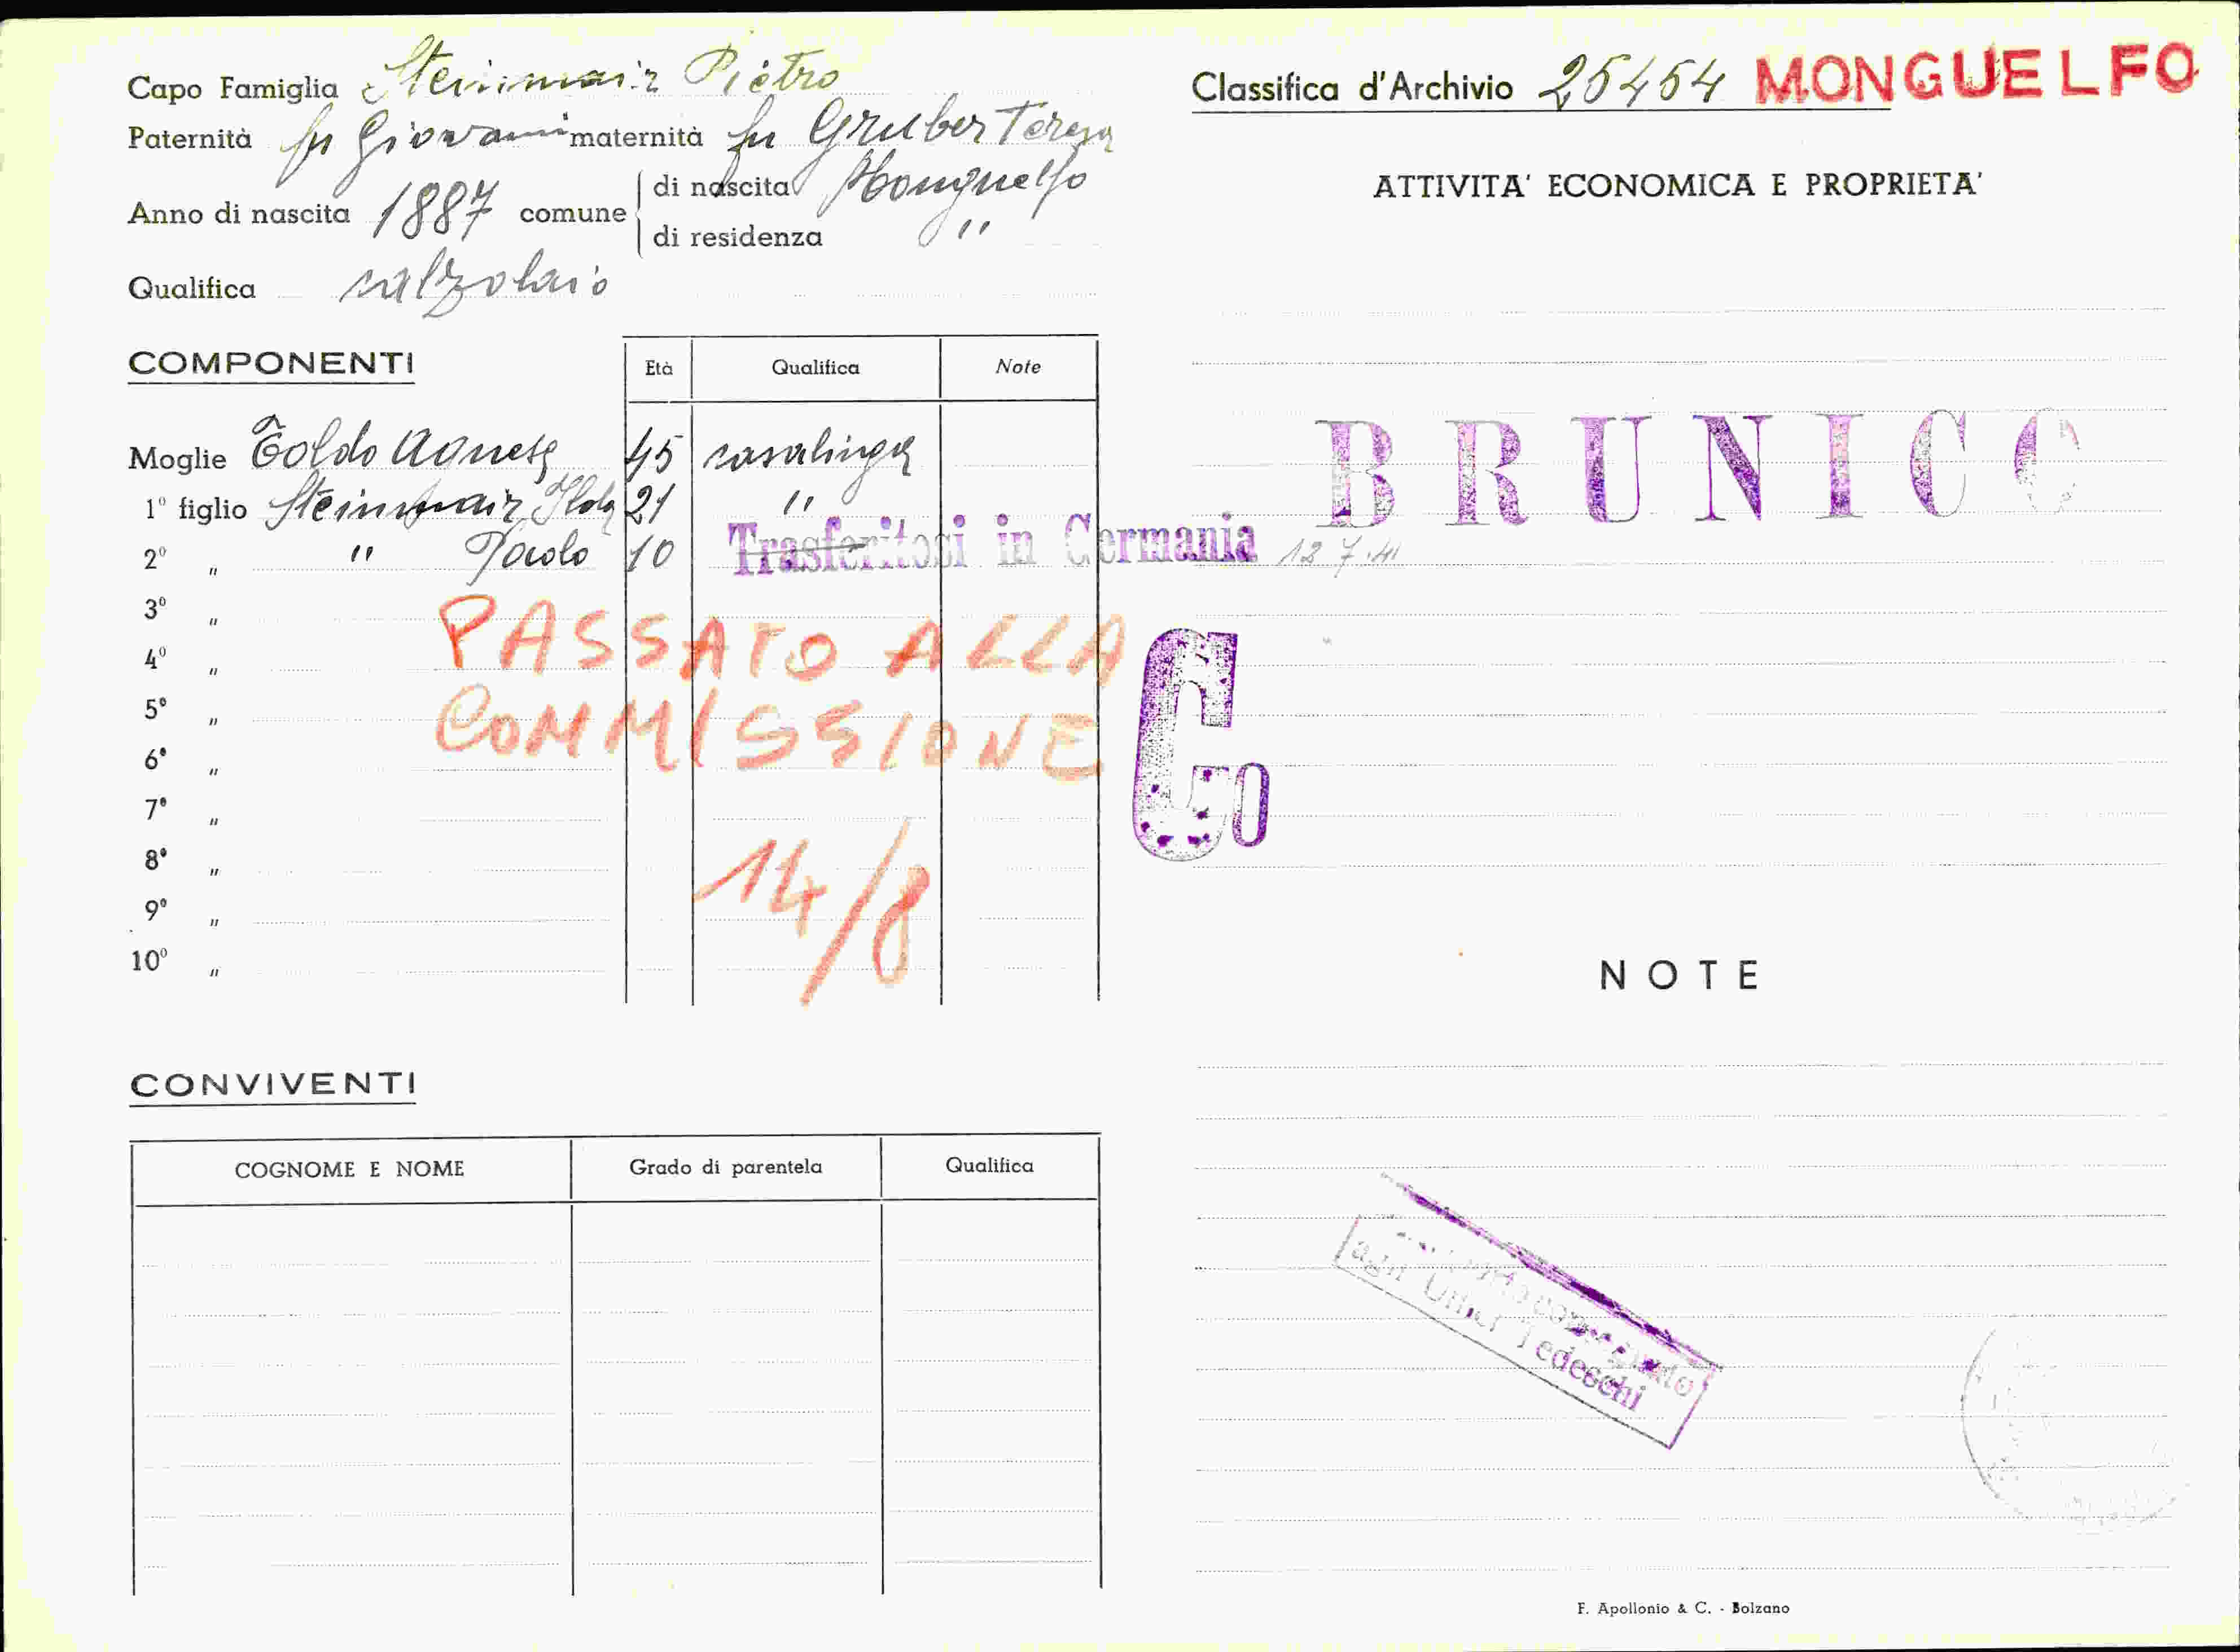 Capo Famiglia Steinmair Pietro
Paternità fu Giovanni maternità fu Gruber Teresa
Anno di nascita 1887 comune di nascita Monguelfo
di residenza "
Qualifica calzolaio
COMPONENTI
Età Qualifica Note
Moglie Toldo Agnese 45 casalinga
1º figlio Steinmair 21 "
2º " " Paolo 10 Trasferitosi in Germania 12.7.41
3º "
4º "
PASSATO ALLA
5º "
6º "
COMMISSIONE
7º "
8º "
9º "
10º "
14/8
CONVIVENTI
COGNOME E NOME Grado di parentela Qualifica
Classifica d'Archivio 25454 MONGUELFO
ATTIVITA' ECONOMICA E PROPRIETA'
BRUNICO
Co
NOTE
consegnato
agli Uffici Tedeschi
F. Apollonio & C. - Bolzano